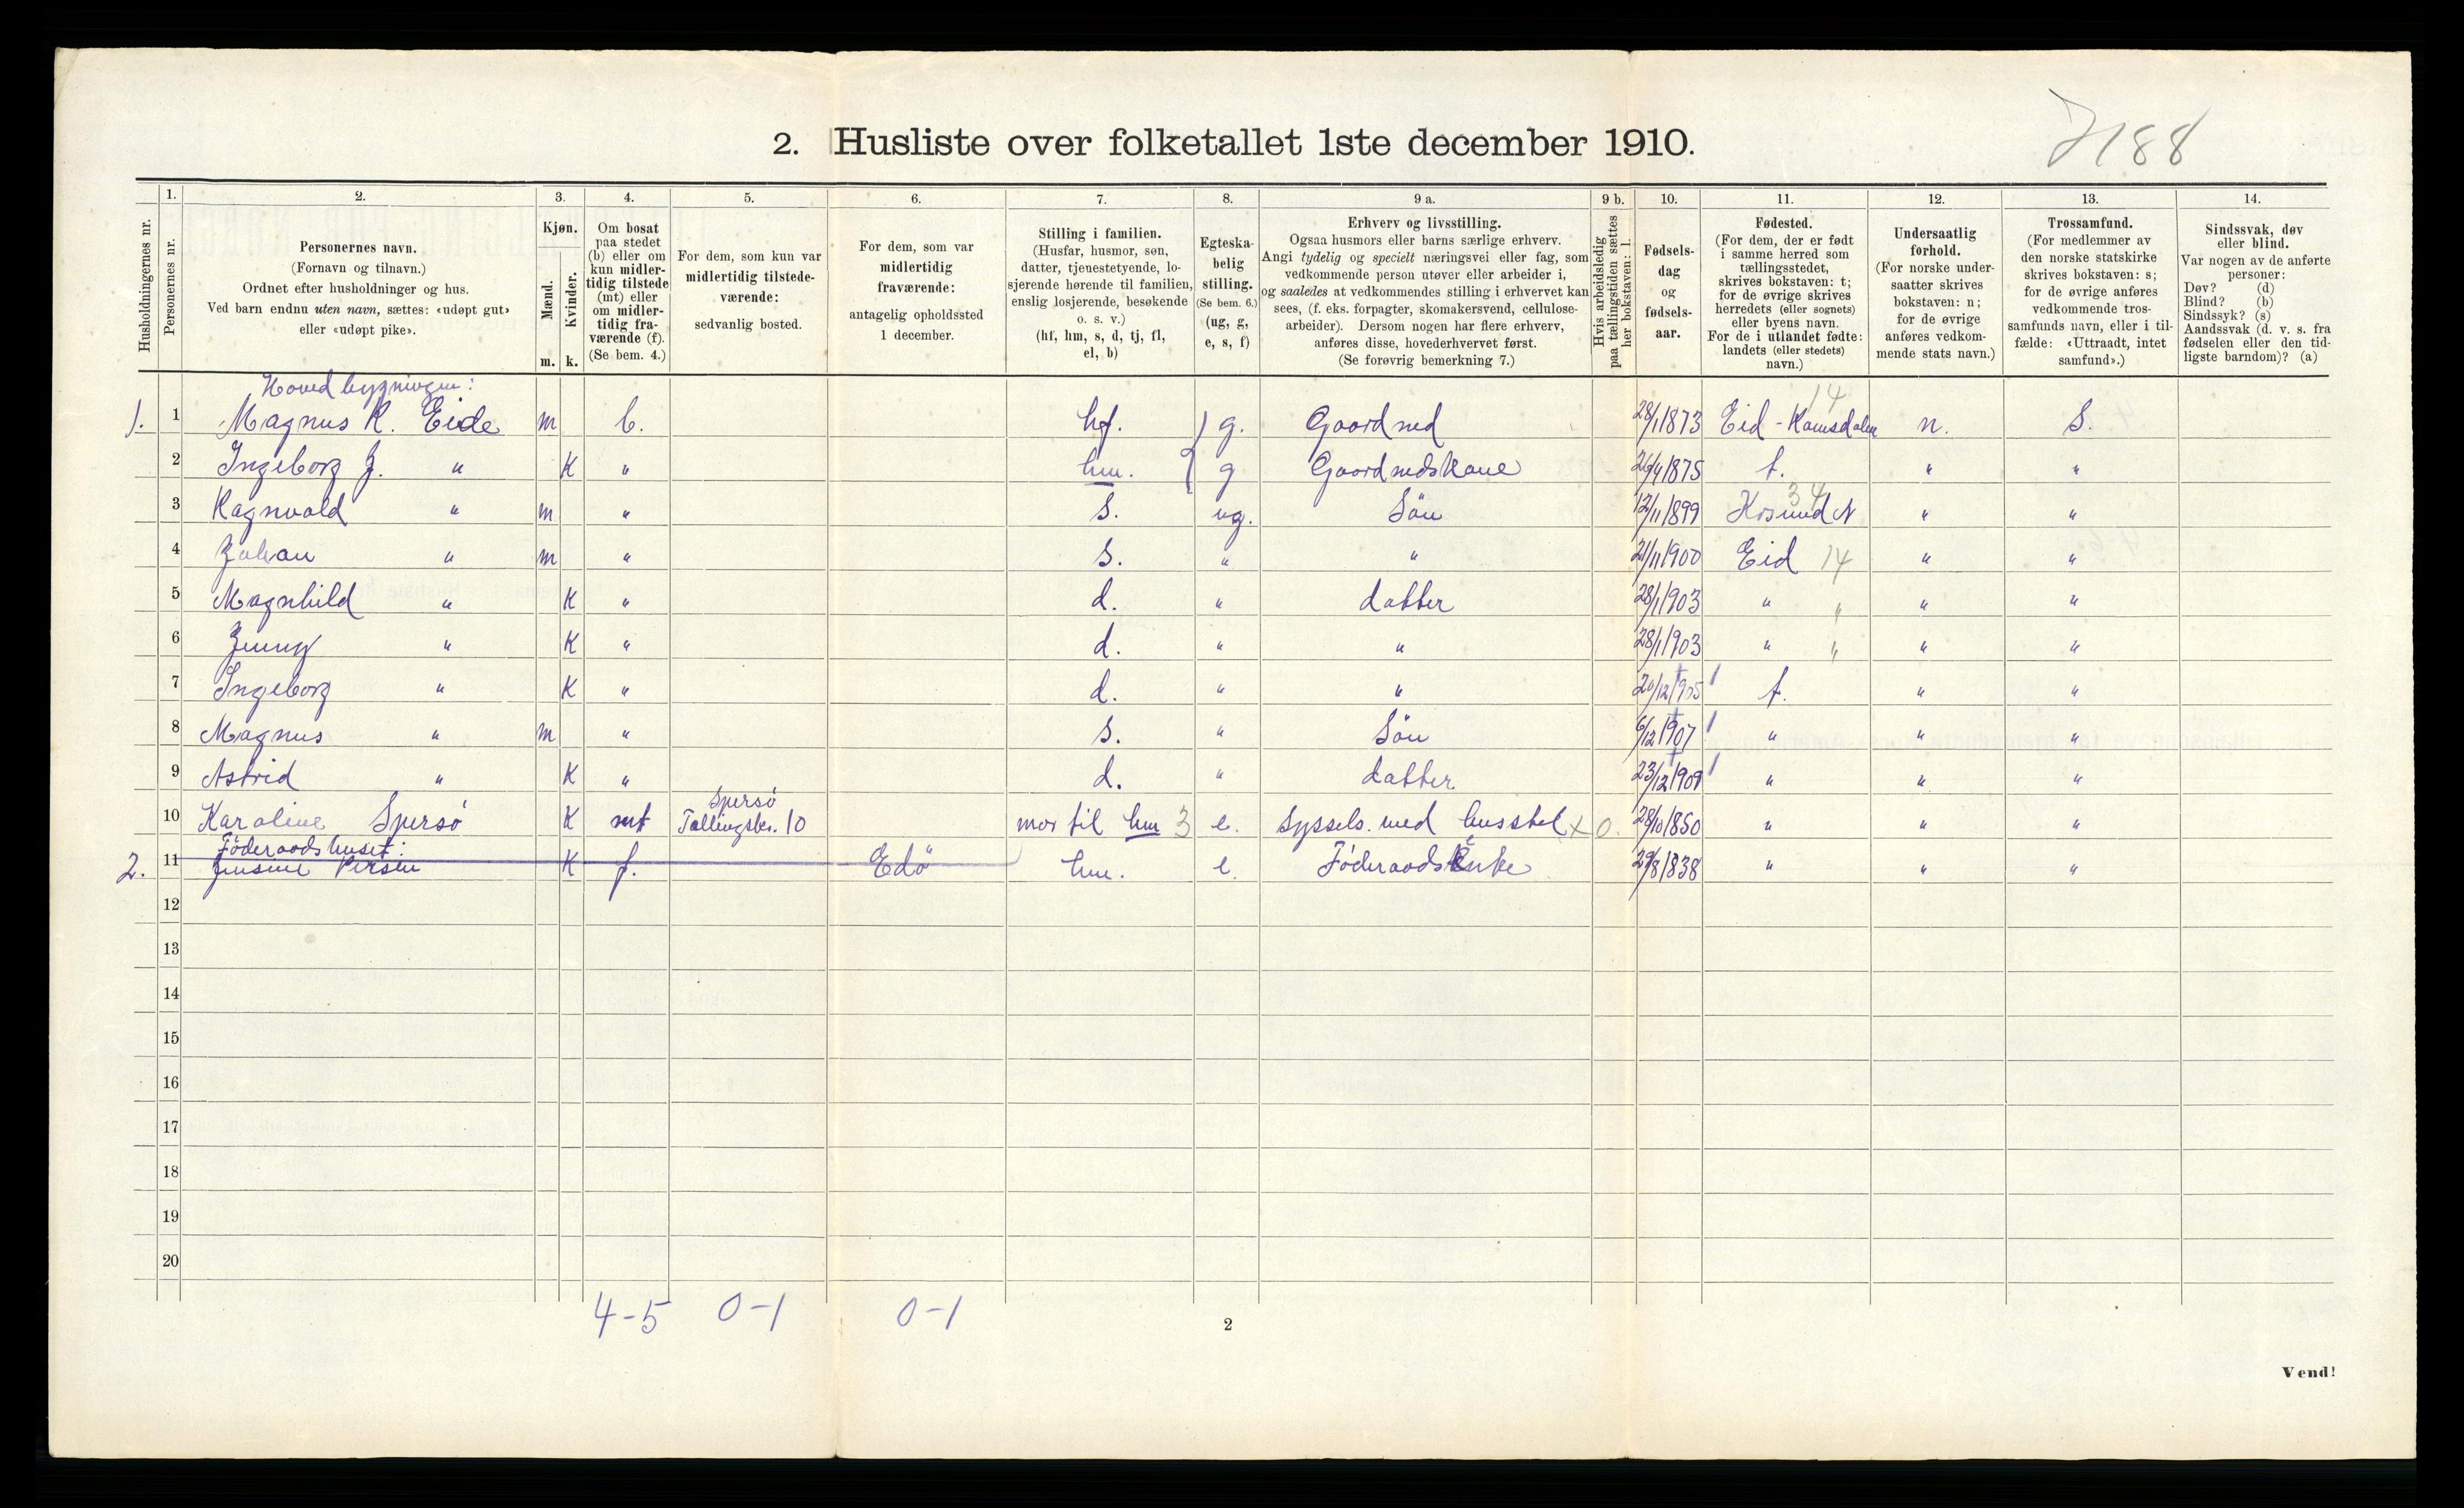 2. Husliste over folketallet 1ste december 1910.
7188
Husholdningernes nr.
1.
Personernes nr.
2.
Personernes navn.
(Fornavn og tilnavn.)
Ordnet efter husholdninger og hus.
Ved barn endnu uten navn, sættes: «udøpt gut»
eller «udøpt pike».
3.
Kjøn.
Mænd.
Kvinder.
m. k.
4.
Om bosat
paa stedet
(b) eller om
kun midler-
tidig tilstede
(mt) eller
om midler-
tidig fra-
værende (f).
(Se bem. 4.)
5.
For dem, som kun var
midlertidig tilstede-
værende:
sedvanlig bosted.
6.
For dem, som var
midlertidig
fraværende:
antagelig opholdssted
1 december.
7.
Stilling i familien.
(Husfar, husmor, søn,
datter, tjenestetyende, lo-
sjerende hørende til familien,
enslig losjerende, besøkende
o. s. v.)
(hf, hm, s, d, tj, fl,
el, b)
8.
Egteska-
belig
stilling.
(Se bem. 6.)
(ug, g,
e, s, f)
9 a.
Erhverv og livsstilling.
Ogsaa husmors eller barns særlige erhverv.
Angi tydelig og specielt næringsvei eller fag, som
vedkommende person utøver eller arbeider i,
og saaledes at vedkommendes stilling i erhvervet kan
sees, (f. eks. forpagter, skomakersvend, cellulose-
arbeider). Dersom nogen har flere erhverv,
anføres disse, hovederhvervet først.
(Se forøvrig bemerkning 7.)
9 b.
Hvis arbeidsledig
paa tællingstiden sættes
her bokstaven: l.
10.
Fødsels-
dag
og
fødsels-
aar.
11.
Fødested.
(For dem, der er født
i samme herred som
tællingsstedet,
skrives bokstaven: t;
for de øvrige skrives
herredets (eller sognets)
eller byens navn.
For de i utlandet fødte:
landets (eller stedets)
navn.)
12.
Undersaatlig
forhold.
(For norske under-
saatter skrives
bokstaven: n;
for de øvrige
anføres vedkom-
mende stats navn.)
13.
Trossamfund.
(For medlemmer av
den norske statskirke
skrives bokstaven: s;
for de øvrige anføres
vedkommende tros-
samfunds navn, eller i til-
fælde: «Uttraadt, intet
samfund».)
14.
Sindssvak, døv
eller blind.
Var nogen av de anførte
personer:
Døv? (d)
Blind? (b)
Sindssyk? (s)
Aandssvak (d. v. s. fra
fødselen eller den tid-
ligste barndom)? (a)
Hovedbygningen:
1. 1 Magnus K. Eide m b. hf. g. Gaardmd 28/1 1873 Eid - Romsdalen 14 n. S.
2 Ingeborg J. " K " hm. g Gaardmdskone 26/4 1875 t. " "
3 Ragnvald " m " s. ug. Søn 12/11 1899 34 " "
4 Johan " m " s. " " 21/11 1900 Eid 14 " "
5 Magnhild " K " d. " datter 28/1 1903 " " " "
6 Jenny " K " d. " " 28/1 1903 " " " "
7 Ingeborg " K " d. " " 20/12 1905 t. " "
8 Magnus " m " s. " Søn 6/12 1907 " " "
9 Astrid " K " d. " datter 23/12 1909 " " "
10 Karoline Spersø K mt Spersø Tællingskr. 10 mor til hm 3 e. Syssels. med husstel x 0. 28/10 1850 " " "
Føderaadshuset:
2. 11 Jensine Persen K f. Edö hm. e. Føderaadsenke 29/8 1838 " " "
12
13
14
15
16
17
18
19
20
4-5 0-1 0-1
2
Vend!